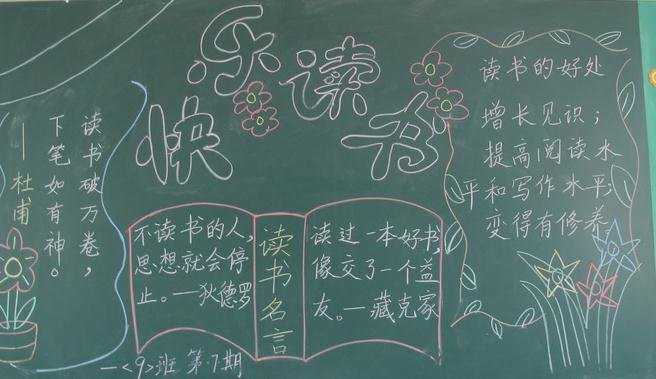 快乐读书
读书破万卷，
下笔如有神。
——杜甫
不读书的人，
思想就会停
止。—狄德罗
读书名言
读过一本好书，
像交了一个益
友。—藏克家
读书的好处
增长见识；
提高阅读水
平和写作水平；
变得有修养。
一〈9〉班 第7期